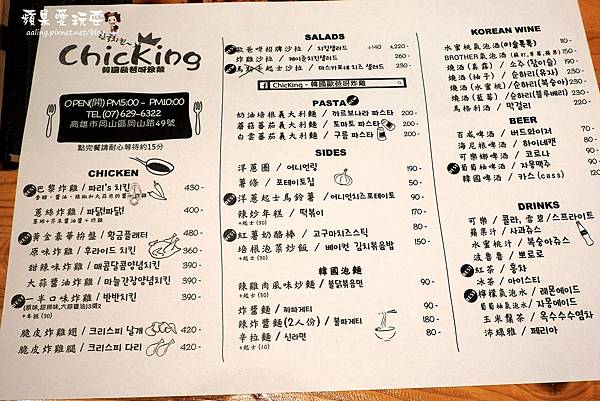 蘋果愛玩耍
aaling.pixnet.net/blog
ChicKing
韓國歐爸呀炸雞
OPEN(間) PM5:00 - PM10:00
TEL (07) 629-6322
高雄市岡山區岡山路49號
點完餐請耐心等待約15分
CHICKEN
巴黎炸雞 / 파리's 치킨 430-
蔥絲炸雞 / 파닭!파닭! 430-
黃金豪華拚盤 / 황금플래터
原味炸雞 / 후라이드 치킨 360-
甜辣味炸雞 / 매콤달콤양념치킨 390-
大蒜醬油炸雞 / 마늘간장양념치킨 390-
一半口味炸雞 / 반반치킨 390-
(原味,甜辣味,大蒜醬油)3選2
*年糕 (30)
脆皮炸雞翅 / 크리스피 날개 420-
脆皮炸雞腿 / 크리스피 다리 420-
SALADS
歐爸呀招牌沙拉 / 치킨샐러드 +140 220-
炸雞沙拉 / 케이준치킨샐러드 260-
起士沙拉 / 마스카포네 치즈 샐러드 230-
ChicKing - 韓國歐爸呀炸雞
PASTA
奶油培根義大利麵 / 까르보나라 파스타
蘑菇蕃茄義大利麵 / 토마토 파스타
白雲蕃茄義大利麵 / 구름 파스타
SIDES
洋蔥圈 / 어니언링
薯條 / 포테이토칩
洋蔥起士馬鈴薯 / 어니언치즈포테이토
辣炒年糕 / 떡볶이 170-
+起士 (30)
紅薯奶酪棒 / 고구마치즈스틱 80-
培根泡菜炒飯 / 베이컨 김치볶음밥 150-
+起士 (30)
韓國泡麵
辣雞肉風味炒麵 / 불닭볶음면 90-
+起士 (30)
炸醬麵 / 짜파게티 90-
辣炸醬麵(2人份) / 불파게티 180-
辛拉麵 / 신라면 80-
+起士 (10)
KOREAN WINE
水蜜桃氣泡酒(이슬톡톡)
燒酒 (真露) / 소주 (참이슬) 190-
燒酒 (柚子) / 순하리(유자) 230-
燒酒 (水蜜桃) / 순하리(복숭아) 230-
燒酒 (藍莓) / 순하리(블루베리)
馬格利酒 / 막걸리
BEER
百威啤酒 / 버드와이저
海尼根啤酒 / 하이네켄
可樂娜啤酒 / 코로나
葡萄柚啤酒 / 자몽맥주
韓國啤酒 / 카스 (cass)
DRINKS
可樂 / 콜라, 雪碧 / 스프라이트
蘋果汁 / 사과쥬스
水蜜桃汁 / 복숭아쥬스
波魯魯 / 뽀로로
紅茶 / 홍차
冰茶 / 아이스티
檸檬氣泡水 / 레몬에이드
葡萄柚氣泡水 / 자몽에이드
玉米鬚茶 / 옥수수수염차
沛綠雅 / 페리아